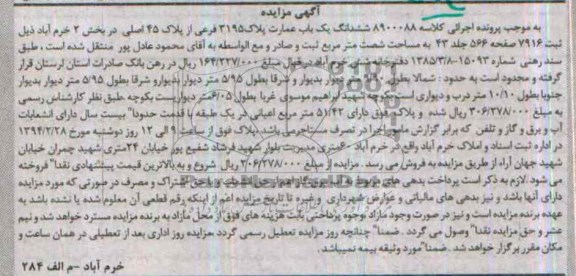 آگهی مزایده
به موجب پرونده اجرائی کلاسه ۸۹۰۰۰۸۸ ششدانگ یک باب عمارت پلاک ۳۱۹۵ فرعی از پلاک ۴۵ اصلی در بخش ۲ خرم آباد ذیل
ثبت ۷۹۱۶ صفحه ۵۶۶ جلد ۴۳ به مساحت شصت متر مربع ثبت و صادر و مع الواسطه به آقای محمود عادل پور منتقل شده است ، طبق
سند رهنی شماره ۱۵۰۹۳-۱۳۸۵/۳/۸ دفترخانه خرم آباد در قبال مبلغ ۱۶۴/۲۲۷/۰۰۰ ریال در رهن بانک صادرات استان لرستان قرار
گرفته و محدود است به حدود : شمالا بطول متر دیوار بدیوار و شرقا بطول ۵/۹۵ متر دیوار بدیوارو شرقا بطول ۵/۹۵ متر دیوار بدیوار
جنوبا بطول ۱۰/۱۰ متر درب و دیواری است بکوچه شهید ابراهیم موسوی غربا بطول متر دیواریست بکوچه .طبق نظر کارشناس رسمی
به مبلغ ۳۰۶/۲۷۸/۰۰۰ ریال شده و پلاک فوق دارای ۵۱/۴۲ متر مربع اعیانی در یک طبقه با قدمت حدودا" بیست سال دارای انشعابات
آب و برق و گاز و تلفن که برابر گزارش مامور اجرا در تصرف مستاجر می باشد .پلاک فوق از ساعت ۹ الی ۱۲ روز دوشنبه مورخ ۱۳۹۴/۲/۲۸
در اداره ثبت اسناد و املاک خرم آباد واقع در خرم آباد ۶۰متری مدیریت بلوار شهید فرشاد شفیع پور خیابان ۲۴متری شهید چمران خیابان
شهید جهان آراء از طریق مزایده به فروش می رسد . مزایده از مبلغ ۳۰۶/۲۷۸/۰۰۰ ریال شروع و به بالاترین قیمت پیشنهادی نقدا" فروخته
می شود .لازم به ذکر است پرداخت بدهی های مربوط به آب ، برق ، گاز اعم از حق انشعاب و یا حق اشتراک و مصرف در صورتی که مورد مزایده
دارای آنها باشد و نیز بدهی های مالیاتی و عوارض شهرداری و غیره تا تاریخ مزایده اعم از اینکه رقم قطعی آن معلوم شده یا نشده باشد به
عهده برنده مزایده است و نیز در صورت وجود مازاد ،وجوه پرداختی بابت هزینه های فوق از محل مازاد به برنده مزایده مسترد خواهد شد و نیم
عشر و حق مزایده نقدا" وصول می گردد . ضمنا" چنانچه روز مزایده تعطیل رسمی گردد .مزایده روز اداری بعد از تعطیلی در همان ساعت و
مکان مقرر برگزار خواهد شد . ضمنا"مورد وثیقه بیمه نمیباشد.
خرم آباد -م الف ۲۸۴